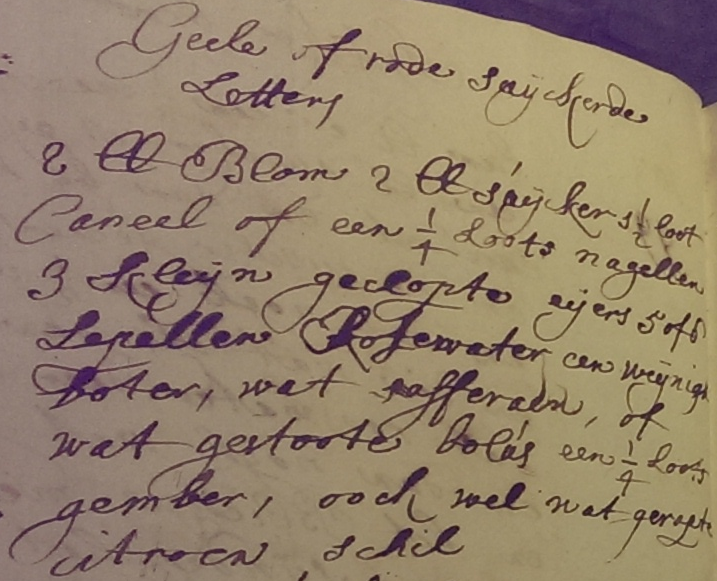 Geele of rode sayckerde
Letters
2 ℔ Blom 2 ℔ suÿckers ½ loot
Caneel of een ¼ Loots nagellen
3 Kleÿn geclopte eijers 5 of 6
Lepellen Rosewater een weÿnigh
boter, wat safferaen, of
wat gestoote bolús een ¼ Loots
gember, ooch wel wat gerapte
citroen schil